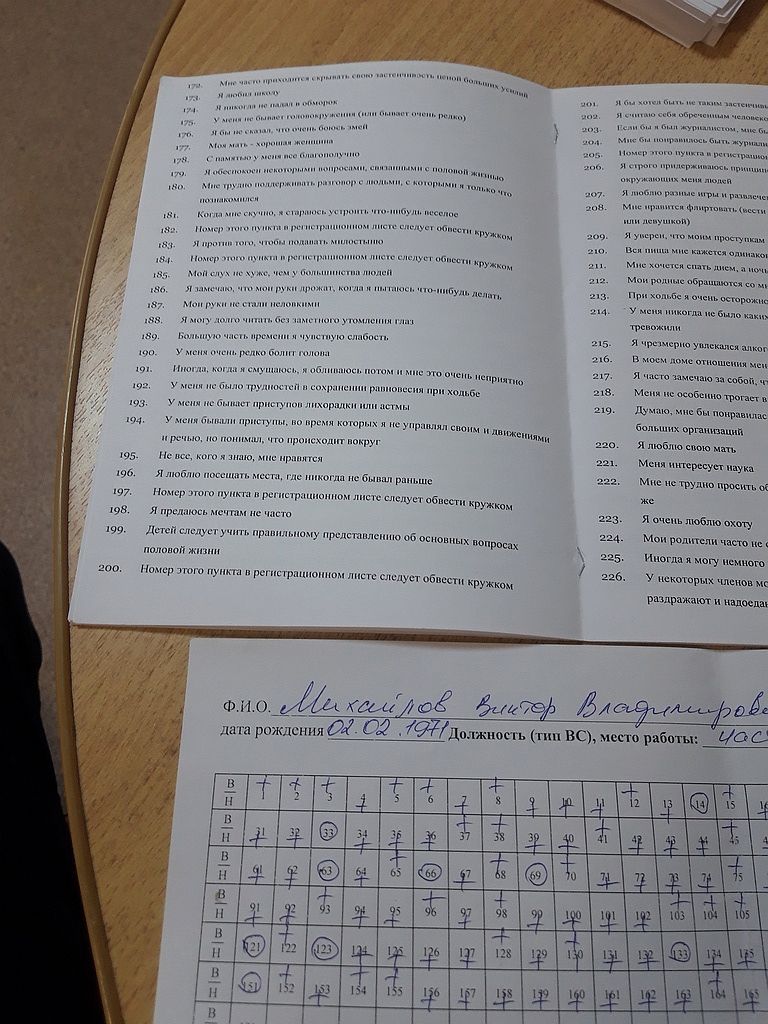 172. Мне часто приходится скрывать свою застенчивость ценой больших усилий
173. Я любил школу
174. Я никогда не падал в обморок
175. У меня не бывает головокружения (или бывает очень редко)
176. Я бы не сказал, что очень боюсь змей
177. Моя мать - хорошая женщина
178. С памятью у меня все благополучно
179. Я обеспокоен некоторыми вопросами, связанными с половой жизнью
180. Мне трудно поддерживать разговор с людьми, с которыми я только что
познакомился
181. Когда мне скучно, я стараюсь устроить что-нибудь веселое
182. Номер этого пункта в регистрационном листе следует обвести кружком
183. Я против того, чтобы подавать милостыню
184. Номер этого пункта в регистрационном листе следует обвести кружком
185. Мой слух не хуже, чем у большинства людей
186. Я замечаю, что мои руки дрожат, когда я пытаюсь что-нибудь делать
187. Мои руки не стали неловкими
188. Я могу долго читать без заметного утомления глаз
189. Большую часть времени я чувствую слабость
190. У меня очень редко болит голова
191. Иногда, когда я смущаюсь, я обливаюсь потом и мне это очень неприятно
192. У меня не было трудностей в сохранении равновесия при ходьбе
193. У меня не бывает приступов лихорадки или астмы
194. У меня бывали приступы, во время которых я не управлял своим и движениями
и речью, но понимал, что происходит вокруг
195. Не все, кого я знаю, мне нравятся
196. Я люблю посещать места, где никогда не бывал раньше
197. Номер этого пункта в регистрационном листе следует обвести кружком
198. Я предаюсь мечтам не часто
199. Детей следует учить правильному представлению об основных вопросах
половой жизни
200. Номер этого пункта в регистрационном листе следует обвести кружком
201. Я бы хотел быть не таким
202. Я считаю себя обреченным
203. Если бы я был журналистом, мне
204. Мне бы понравилось быть
205. Номер этого пункта в
206. Я строго придерживаюсь
окружающих меня людей
207. Я люблю разные игры и
208. Мне нравится флиртовать (вести
или девушкой)
209. Я уверен, что моим проступкам
210. Вся пища мне кажется
211. Мне хочется спать днем, а
212. Мои родные обращаются со
213. При ходьбе я очень
214. У меня никогда не было
тревожили
215. Я чрезмерно увлекался
216. В моем доме отношения
217. Я часто замечаю за собой,
218. Меня не особенно трогает
219. Думаю, мне бы
больших организаций
220. Я люблю свою мать
221. Меня интересует наука
222. Мне не трудно просить
же
223. Я очень люблю охоту
224. Мои родители часто не
225. Иногда я могу немного
226. У некоторых членов
раздражают и
Ф.И.О. Михайлов Виктор
дата рождения 02.02.1971 Должность (тип ВС), место работы:
В Н 1 2 3 4 5 6 7 8 9 10 11 12 13 14 15
В Н 31 32 33 34 35 36 37 38 39 40 41 42 43 44 45
В Н 61 62 63 64 65 66 67 68 69 70 71 72 73 74 75
В Н 91 92 93 94 95 96 97 98 99 100 101 102 103 104 105
В Н 121 122 123 124 125 126 127 128 129 130 131 132 133 134 135
В Н 151 152 153 154 155 156 157 158 159 160 161 162 163 164 165
В